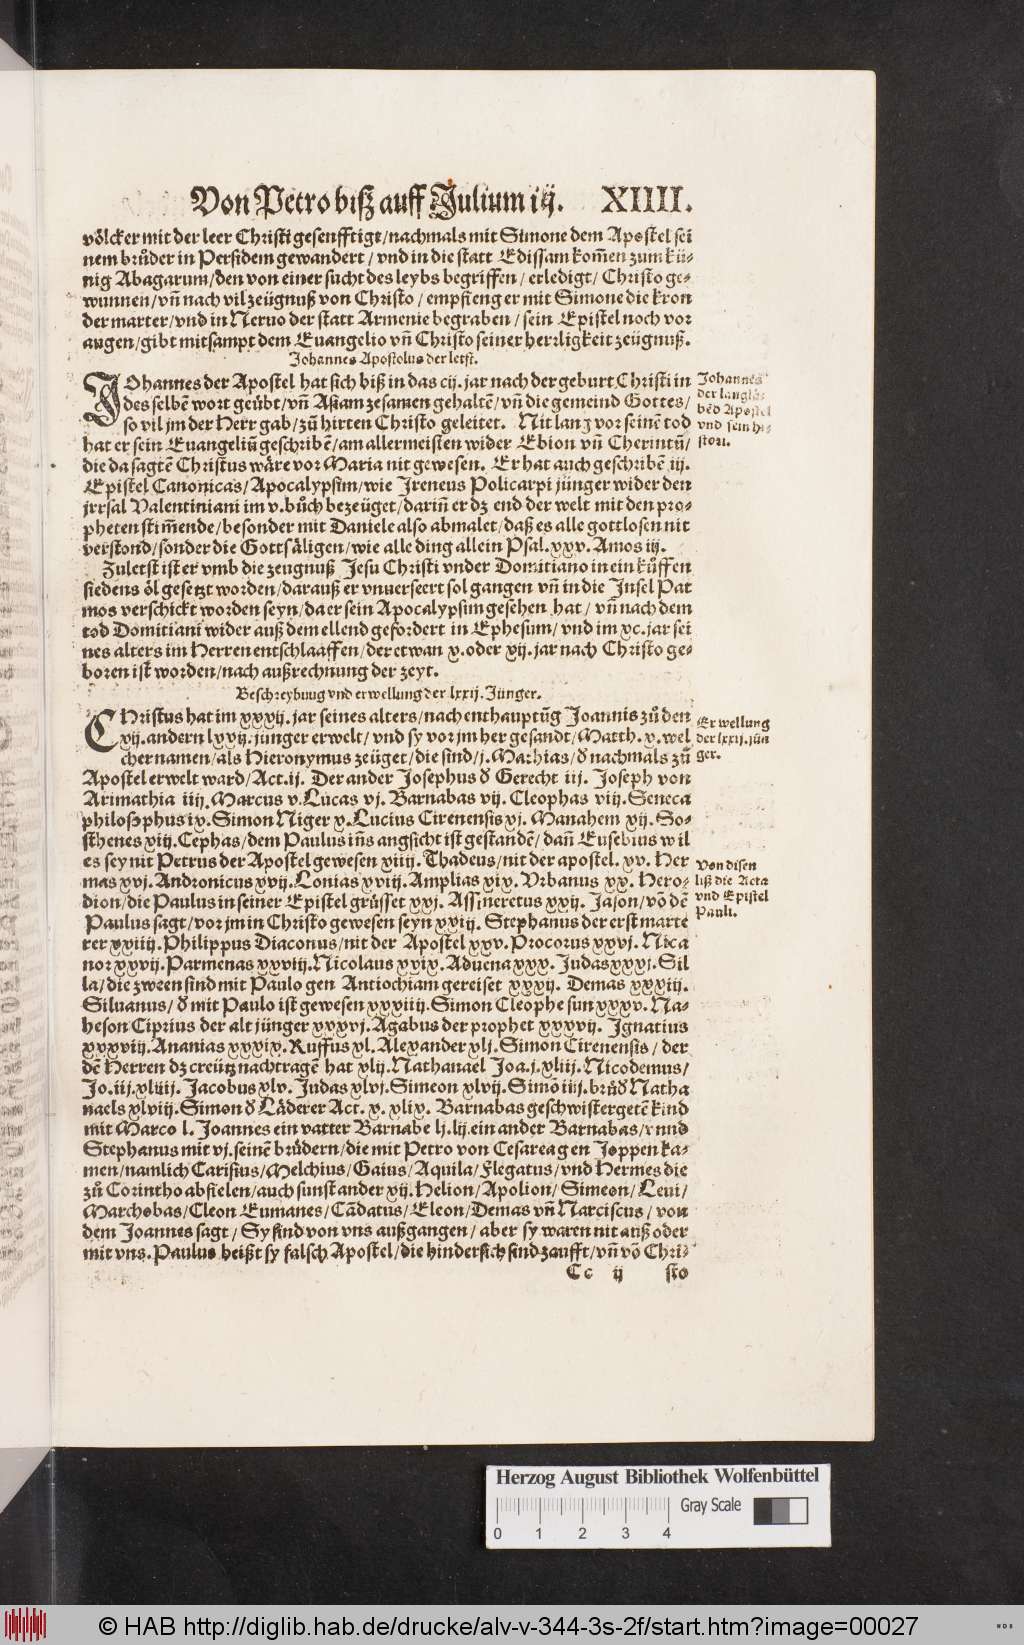 Von Petro biß auff Julium iij. XIIII.
völcker mit der leer Christi gesenfftigt/nachmals mit Simone dem Apostel sei
nem brůder in Persidem gewandert/ vnd in die statt Edissam kom̃en zum kü-
nig Abagarum/den von einer sucht des leybs begriffen/ erledigt/ Christo ge-
wunnen/vñ nach vil zeügnuß von Christo/ empfieng er mit Simone die kron
der marter/vnd in Neruo der statt Armenie begraben/ sein Epistel noch vor
augen/gibt mitsampt dem Euangelio vñ Christo seiner herrligkeit zeügnuß.
Johannes Apostolus der letst.
JOhannes der Apostel hat sich biß in das cij. jar nach der geburt Christi in
des selbẽ wort geůbt/vñ Asiam zesamen gehaltẽ/vñ die gemeind Gottes/
so vil jm der Herr gab/zů hirten Christo geleitet. Nit lang vor seinẽ tod
hat er sein Euangeliũ geschribẽ/am allermeisten wider Ebion vñ Cherintũ/
die da sagtẽ Christus wäre vor Maria nit gewesen. Er hat auch geschribẽ iij.
Epistel Canonicas/Apocalypsim/wie Ireneus Policarpi jünger wider den
jrrsal Valentiniani im v.bůch bezeüget/dariñ er dz end der welt mit den pro-
pheten stim̃ende/besonder mit Daniele also abmalet/daß es alle gottlosen nit
verstond/sonder die Gottsäligen/wie alle ding allein Psal.xxv. Amos iij.
Zuletst ist er vmb die zeugnuß Jesu Christi vnder Domitiano in ein küffen
siedens öl gesetzt worden/darauß er vnuerseert sol gangen vñ in die Insel Pat
mos verschickt worden seyn/da er sein Apocalypsim gesehen hat/ vñ nach dem
tod Domitiani wider auß dem ellend gefordert in Ephesum/ vnd im xc.jar sei
nes alters im Herren entschlaaffen/der etwan x.oder xij.jar nach Christo ge-
boren ist worden/nach außrechnung der zeyt.
Beschreybung vnd erwellung der lxxij. Jünger.
CHristus hat im xxxij.jar seines alters/nach enthauptũg Joannis zů den
xij.andern lxxij.junger erwelt/ vnd sy vor jm her gesandt/Matth.x.wel
cher namen/als Hieronymus zeüget/die sind/j.Mathias/d nachmals zũ
Apostel erwelt ward/Act.ij. Der ander Josephus d Gerecht iij. Joseph von
Arimathia iiij.Marcus v.Lucas vj. Barnabas vij. Cleophas viij.Seneca
philosophus ix.Simon Niger x.Lucius Cirenensis xj. Manahem xij. So-
sthenes xiij.Cephas/dem Paulus iñs angsicht ist gestandẽ/dañ Eusebius wil
es sey nit Petrus der Apostel gewesen xiiij.Thadeus/nit der apostel. xv. Her
mas xvj.Andronicus xvij.Lonias xviij.Amplias xix. Vrbanus xx. Hero-
dion/die Paulus in seiner Epistel grüsset xxj. Assineretus xxij. Jason/võ dẽ
Paulus sagt/vor jm in Christo gewesen seyn xxiij. Stephanus der erst marte
rer xxiiij.Philippus Diaconus/nit der Apostel xxv.Procorus xxvj. Nica
nor xxvij.Parmenas xxviij.Nicolaus xxix.Aduena xxx. Judas xxxj.Sil
la/die zween sind mit Paulo gen Antiochiam gereiset xxxij. Demas xxxiij.
Siluanus/ d mit Paulo ist gewesen xxxiiij.Simon Cleophe sun xxxv. Na-
heson Ciprius der alt jünger xxxvj.Agabus der prophet xxxvij. Ignatius
xxxviij.Ananias xxxix.Ruffus xl.Alexander xlj.Simon Cirenensis/ der
dẽ Herren dz creütz nachtragẽ hat xlij.Nathanael Joa.j.xliij.Nicodemus/
Jo.iij.xliiij. Jacobus xlv. Judas xlvj.Simeon xlvij.Simõ iiij.brůd Natha
naels xlviij.Simon d Läderer Act. x. xlix. Barnabas geschwistergetẽ kind
mit Marco l.Joannes ein vatter Barnabe lj.lij.ein ander Barnabas/vnnd
Stephanus mit vj.seinẽ brůdern/die mit Petro von Cesarea gen Joppen ka-
men/namlich Carisius/Melchius/Gaius/Aquila/Flegatus/vnd Hermes die
zů Corintho abfielen/auch sunst ander xij.Helion/Apolion/ Simeon/ Leui/
Marchobas/Cleon Eumanes/Cãdatus/Eleon/Demas vñ Narciscus/ von
dem Joannes sagt/ Sy sind von vns außgangen/ aber sy waren nit auß oder
mit vns.Paulus heißt sy falsch Apostel/die hindersich sind zaufft/vñ võ Chri-
Cc ij sto
Johannes
der langlä-
bẽd Apostel
vnd sein hi-
stori.
Erwellung
der lxxij.jün
ger.
Von disen
liß die Acta
vnd Epistel
Pauli.
Herzog August Bibliothek Wolfenbüttel
Gray Scale
0 1 2 3 4
© HAB http://diglib.hab.de/drucke/alv-v-344-3s-2f/start.htm?image=00027